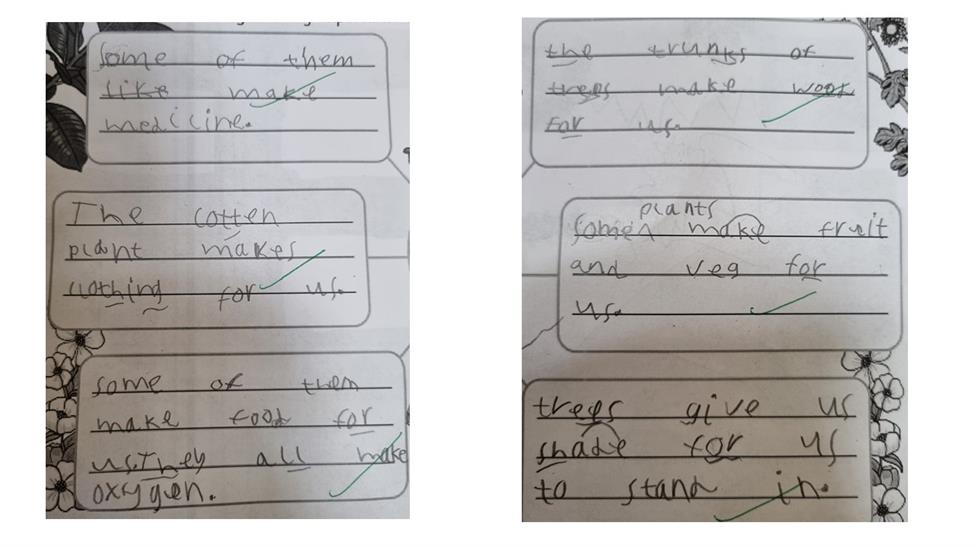 some of them
like make
medicine.
The cotten
plant makes
clothing for us.
some of them
make food for
us.They all make
oxygen.
the trunks of
trees make wood
for us.
plants
some make fruit
and veg for
us.
trees give us
shade for us
to stand in.